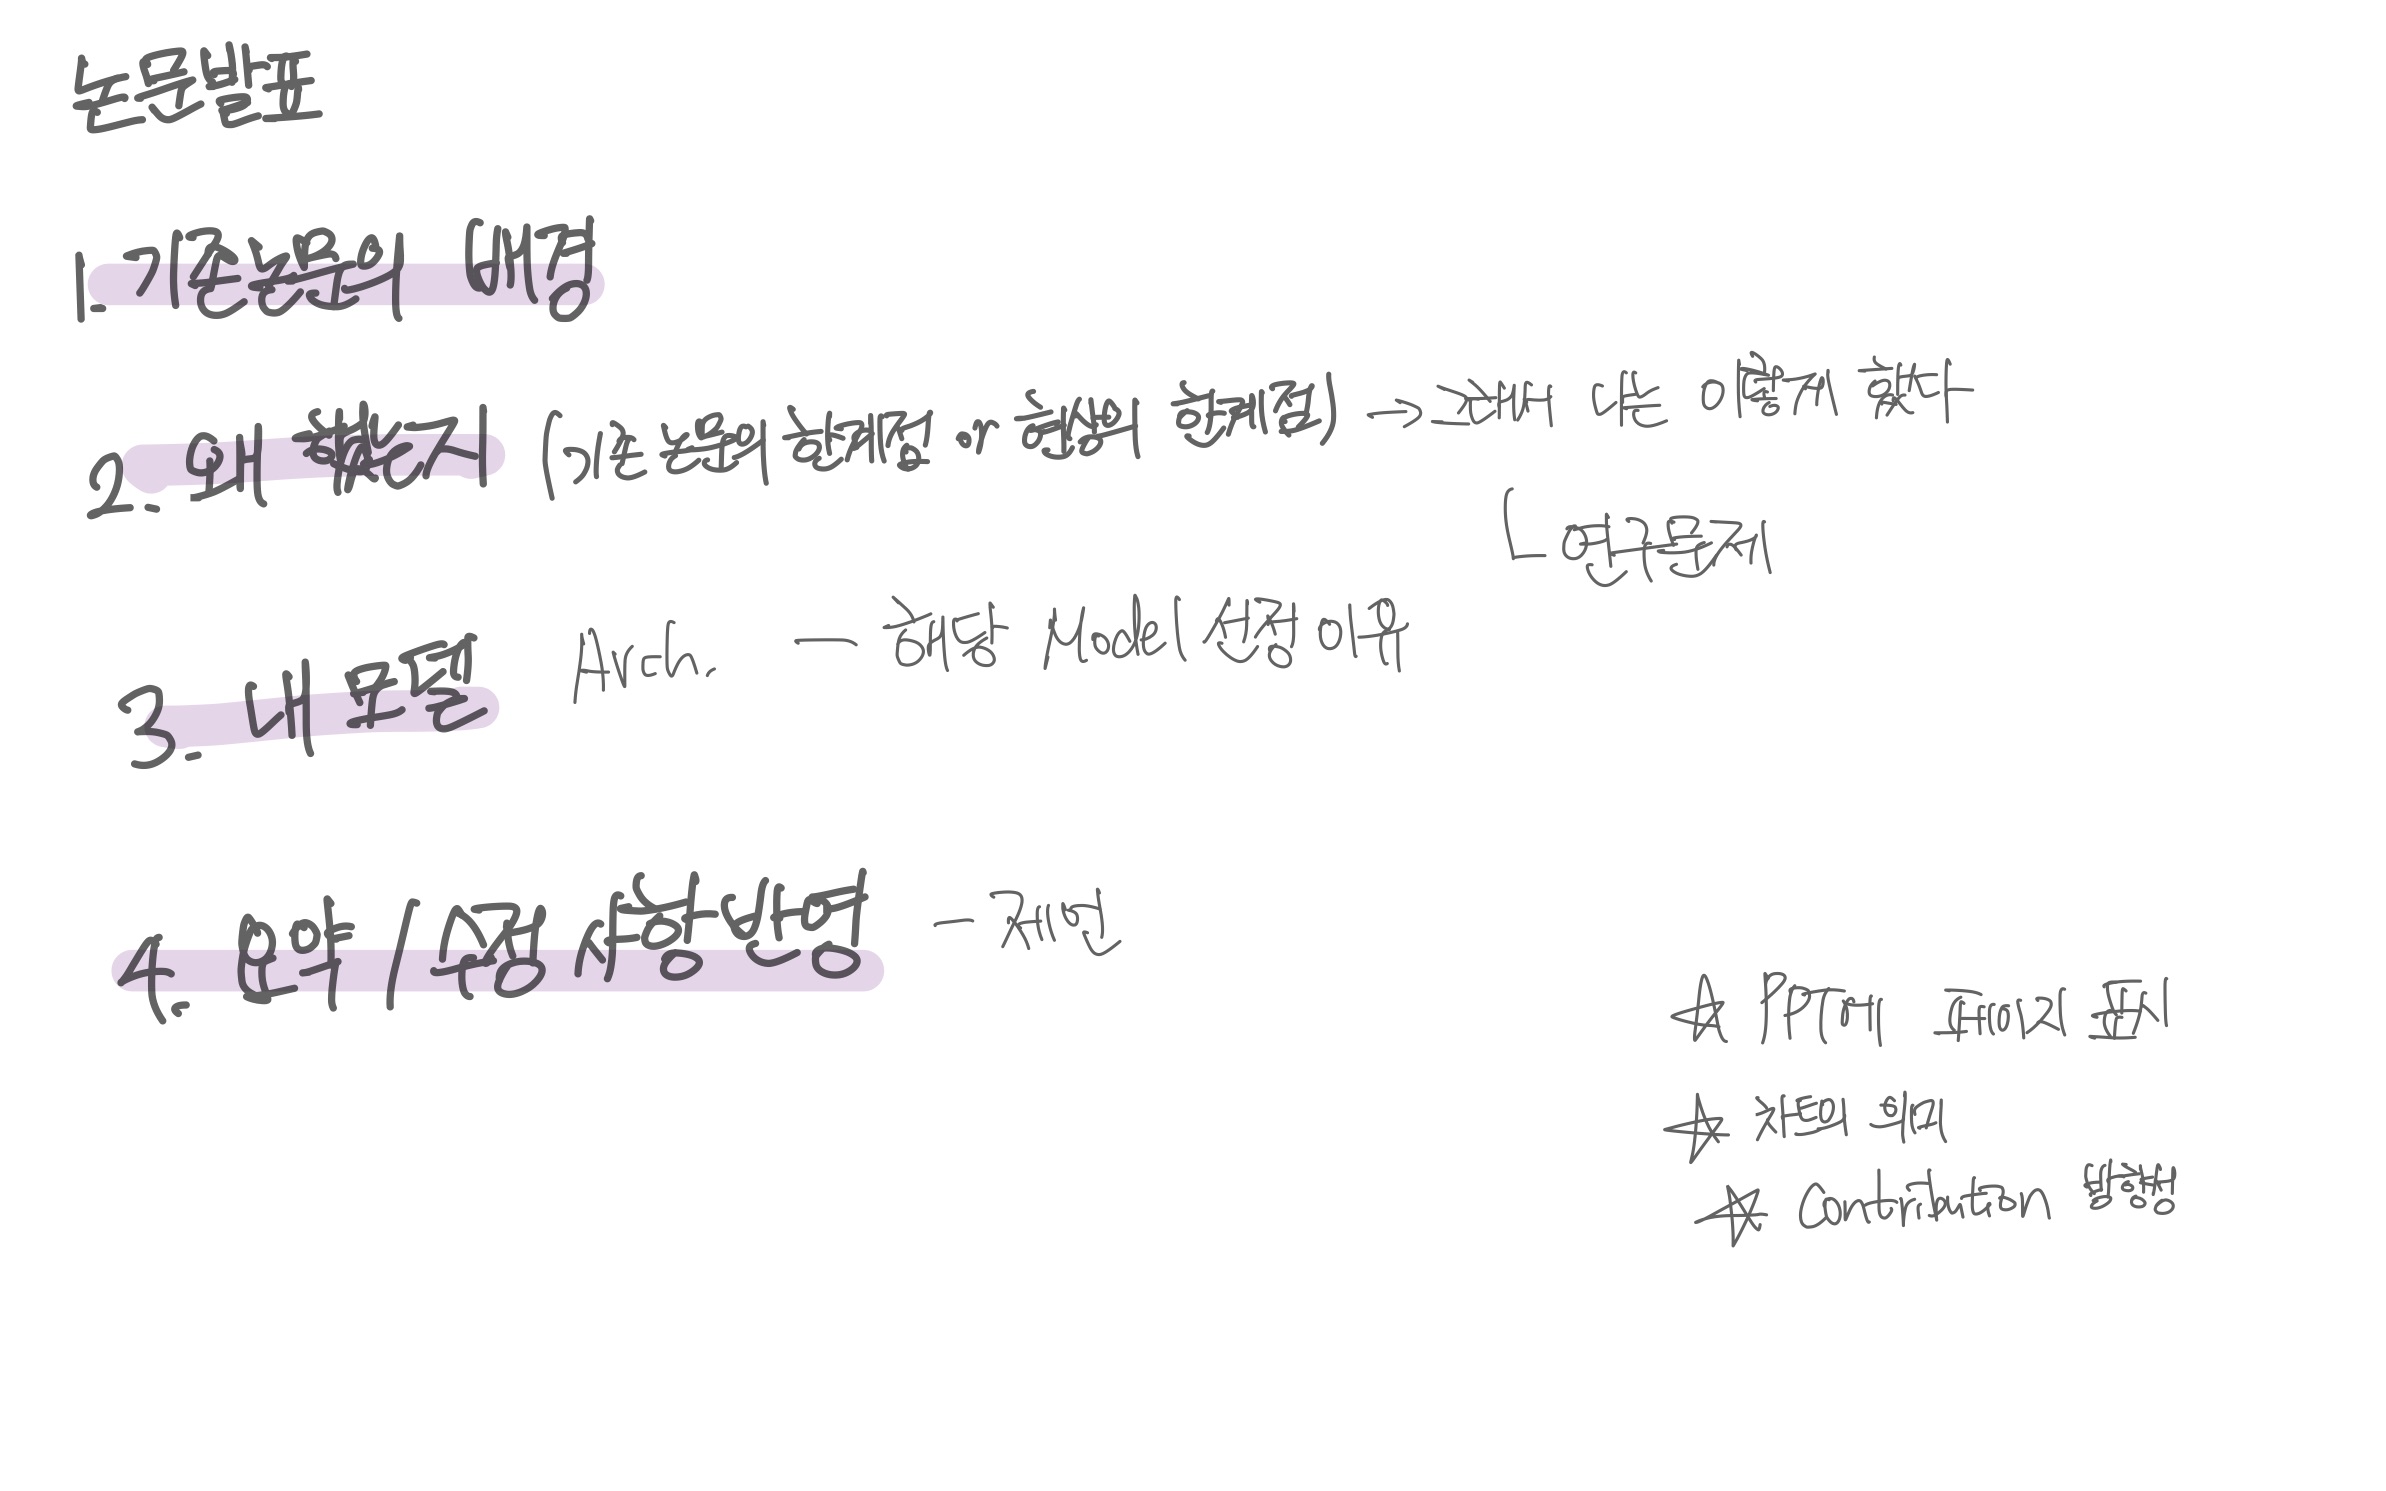 논문발표
1. 기존논문의 배경
2. 왜 했는지 (기존 논문의 한계점 이 논문의 해결점) → 해당 이론까지 했다
ㄴ 연구문제
3. 내 모델 Arch. — 해당 Model 선정 이유
4. 요약 / 수정사항 방향 — 개인
☆ PPT에 페이지 표시
☆ 차트의 의미
☆ Contribution 방향성